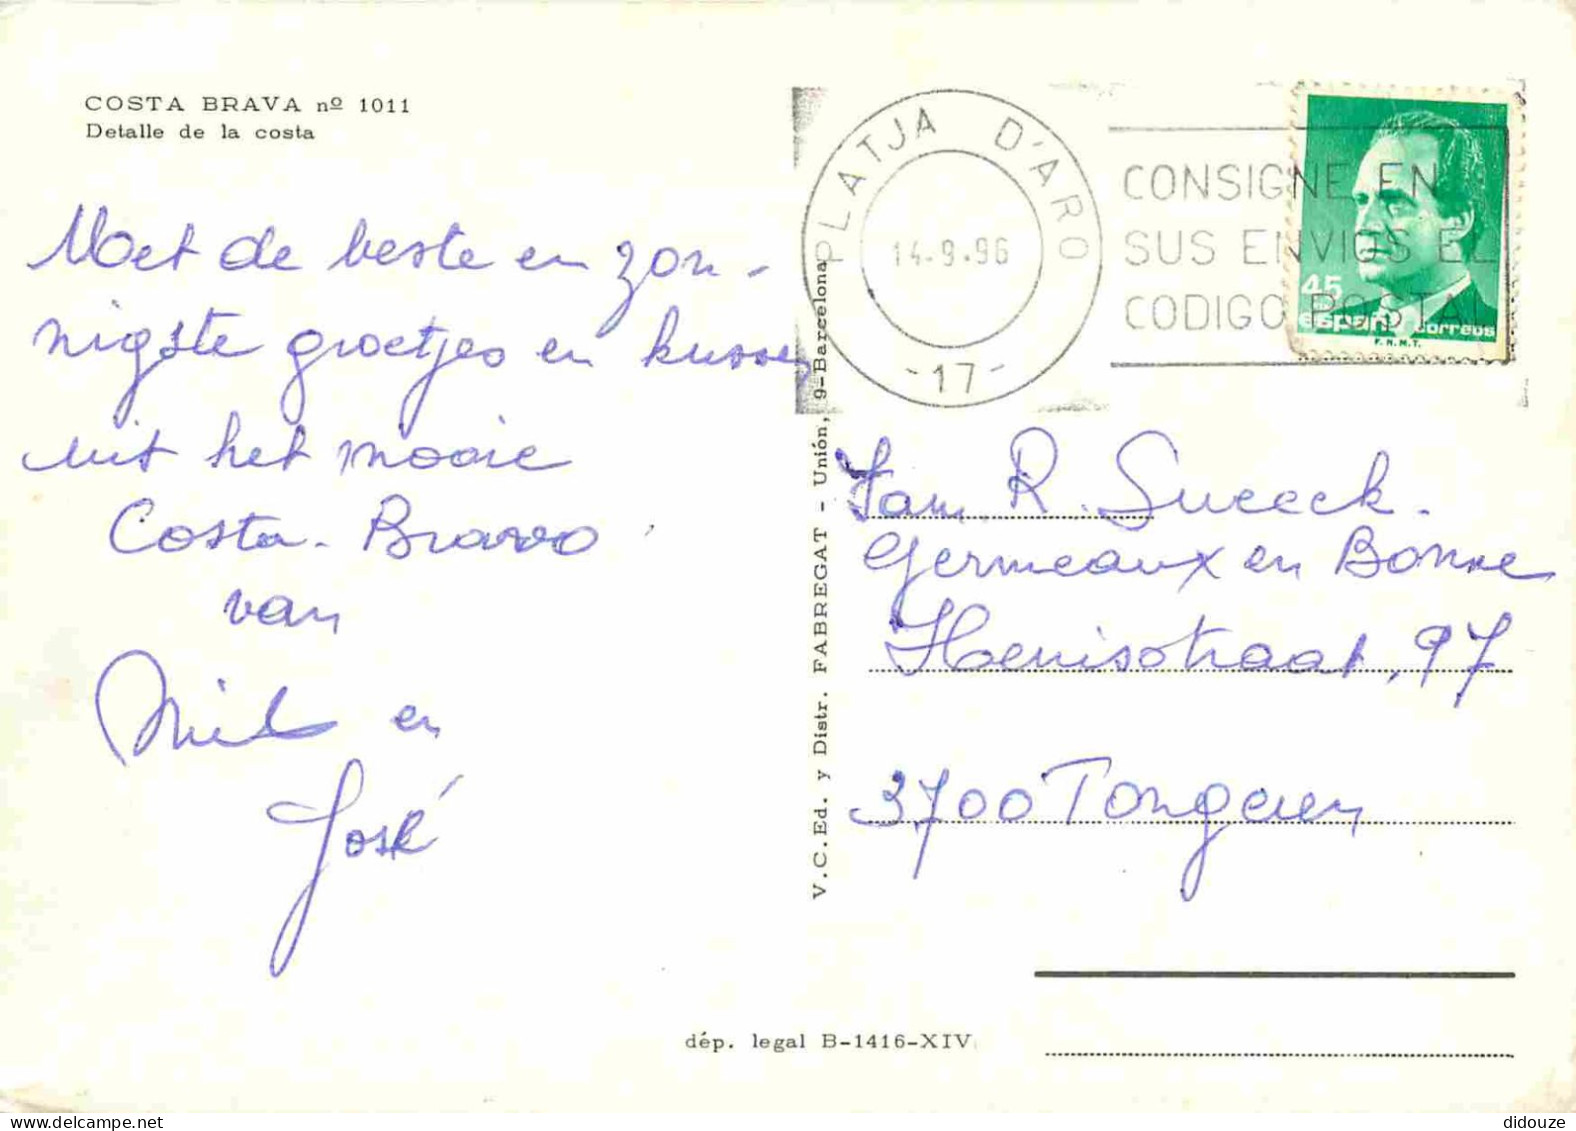 COSTA BRAVA nº 1011
Detalle de la costa
PLATJA D'ARO
14.9.96
-17-
CONSIGNE EN
SUS ENVIOS EL
CODIGO POSTAL
45
españa correos
F.N.M.T.
Met de beste en zon-
nigste groetjes en kussen
uit het mooie
Costa-Bravo
van
en
José
V.C.Ed. y Distr. FABREGAT - Unión, 9-Barcelona
Fam. R. Sueeck.
Germeaux en Bonne
Henisstraat, 97
3700 Tongeren
dép. legal B-1416-XIV
didouze